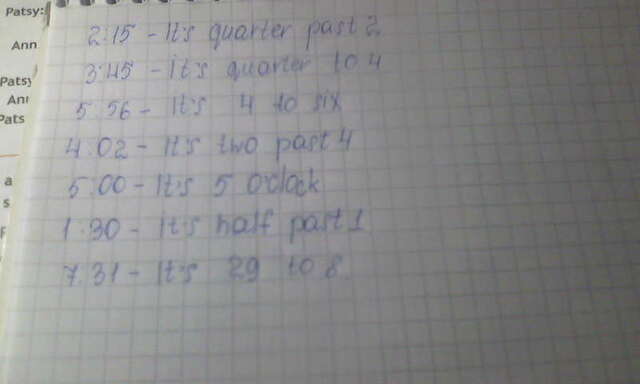 Patsy:
Ann
Patsy
Pats
a
s
2:15 - It's quarter past 2
3:45 - it's quarter to 4
5:56 - It's 4 to six
4:02 - It's two past 4
5:00 - It's 5 o'clock
1:30 - It's half past 1
7:31 - It's 29 to 8